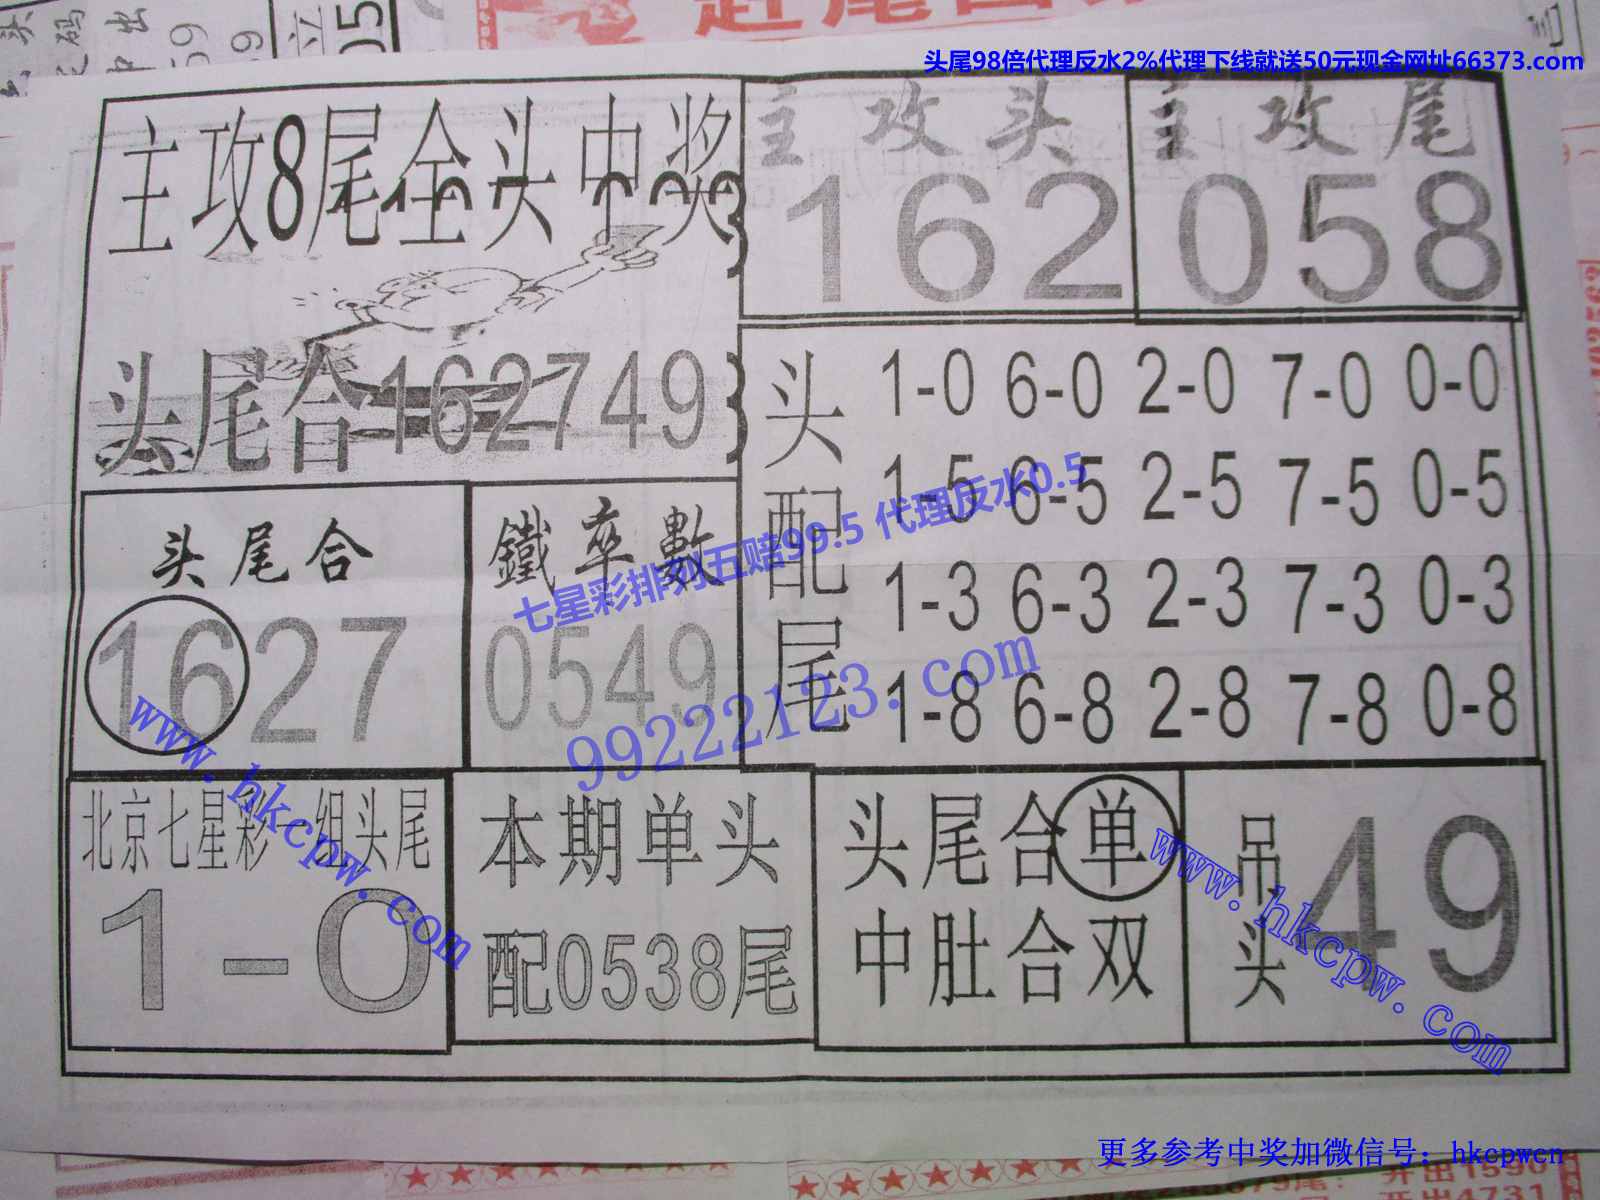 头尾98倍代理反水2%代理下线就送50元现金网址66373.com
主攻8尾全头中奖
头尾合162749
主攻头
162
主攻尾
058
头尾合
1627
鐵卒數
0549
头配尾
1-0 6-0 2-0 7-0 0-0
1-5 6-5 2-5 7-5 0-5
1-3 6-3 2-3 7-3 0-3
1-8 6-8 2-8 7-8 0-8
七星彩排列五赔99.5 代理反水0.5
99222123.com
北京七星彩一组头尾
1-0
www.hkcpw.com
本期单头
配0538尾
头尾合单
中肚合双
吊头
49
www.hkcpw.com
更多参考中奖加微信号：hkcpwcn